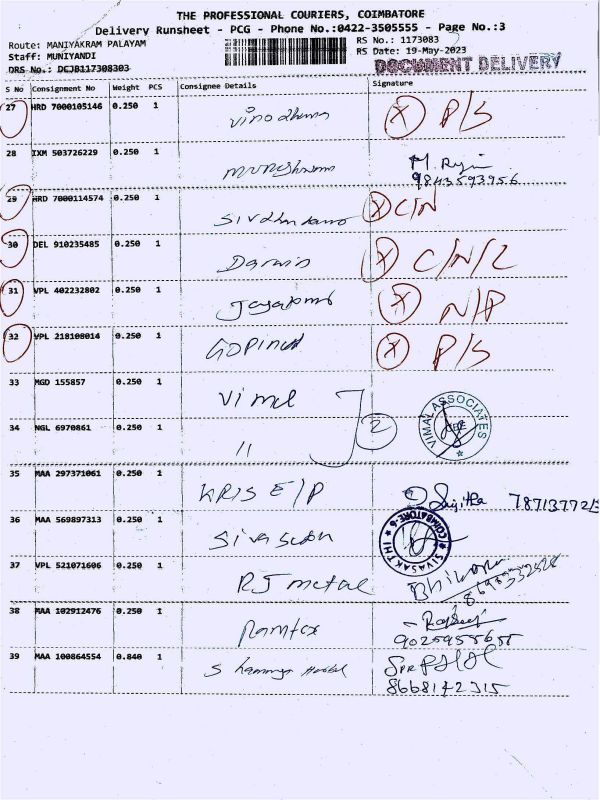 THE PROFESSIONAL COURIERS, COIMBATORE
Delivery Runsheet - PCG - Phone No.:0422-3505555 - Page No.:3
Route: MANIYAKRAM PALAYAM RS No.: 1173083
Staff: MUNIYANDI RS Date: 19-May-2023
DRS No.: DCJB117308303 DOCUMENT DELIVERY
S No Consignment No Weight PCS Consignee Details Signature
27 HRD 7000105146 0.250 1 X P/S
28 IXM 503726229 0.250 1 M.
9843593956
29 HRD 7000114574 0.250 1 X C/N
30 DEL 910235485 0.250 1 Darwin X C/N/L
31 VPL 402232802 0.250 1 X N/P
32 VPL 218108014 0.250 1 GOPINATH X P/S
33 MGD 155857 0.250 1 Vimal
34 NGL 6970861 0.250 1 11 2 VIMAL ASSOCIATES
35 MAA 297371061 0.250 1 KRIS E/P
36 MAA 569897313 0.250 1 SIVASAKTHI COIMBATORE-6
37 VPL 521071606 0.250 1 RJ metal
38 MAA 102912476 0.250 1 Ramtex
9025955655
39 MAA 100864554 0.840 1 S
8668142315